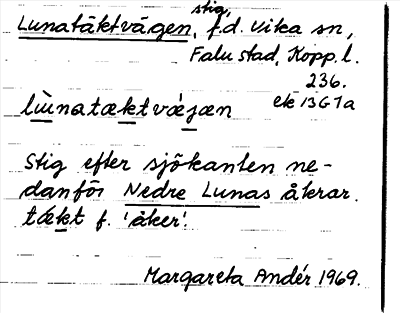 Lunatäktvägen, stig, f.d. Vika sn,
Falu stad, Kopp. l.
236.
ek 13G1a
lùnatæktvǽjæn
Stig efter sjökanten ne-
danför Nedre Lunas åkrar.
tǽkt f. 'åker'.
Margareta Andér 1969.